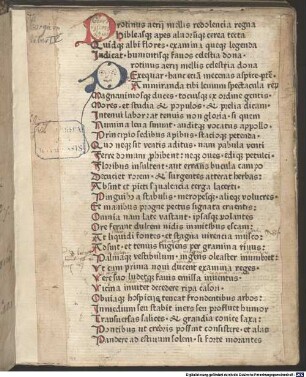 Protinus aerij mellis redolentia regna
Hiblęasqȝ apes alueorūqȝ cerea tecta
Quidqȝ albi flores examina queqȝ legenda
Indicat humentisqȝ fauos cęlestia dona.
Protinus aerij mellis celestia dona
Exequar. hanc etiā mecenas aspice ptē.
Ammiranda tibi leuium spectacula reȝ
Magnanimosqȝ duces. totiusqȝ ex ordine gentis
Mores. et studia & populos & prelia dicam
Intenui labor at tenuis non gloria. si quem
Numina leua sinunt. auditqȝ vocatus appollo
Principio sedibus apibus. statioqȝ petenda
Quo neqȝ sit ventis aditus. nam pabula venti
Ferre domum phibent neqȝ oues. ediqȝ petulci
Floribus insultent. aut errans bucula campo
Decutiet rorem. & surgentes atterat herbas
Absint et picti squalencia terga lacerti
Pinguibȝ a stabulis. meropesqȝ. alieqȝ volucres
Et manibus progne pectus signata cruentis
Omnia nam late vastant. ipsasqȝ volantes
Ore ferunt dulcem nidis immitibus escam
At liquidi fontes. et stagna virencia musco
Adsint. et tenuis fugiens per gramina riuus
Palmaqȝ vestibulum. ingens oleaster inumbret
Vt cum prima noui ducent examina reges
Vere suo. ludetqȝ fauis emissa iuuentus
Vicina inuitet decedere ripa calori
Obuiaqȝ hospicijs teneat frondentibus arbos
In medium seu stabit iners seu profluet humor
Transuersas salices. & grandia coniice saxa
Pontibus ut crebris possint consistere. et alas
Pandere ad estiuum solem. si forte morantes